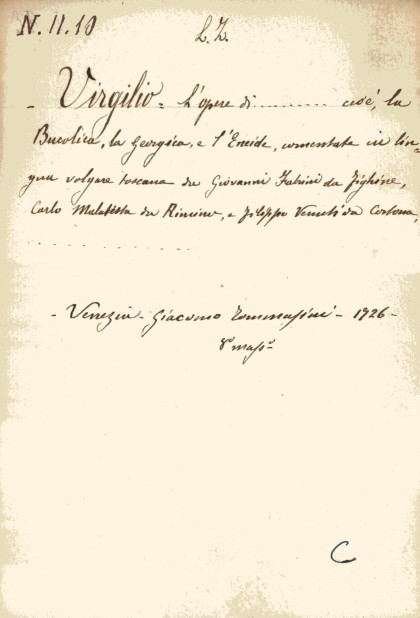 N. 11.10
L. Z.
- Virgilio - L'opere di .......... cioè, la
Bucolica, la Georgica, e l'Eneide, comentate in lin-
gua volgare toscana da Giovanni Fabrini da Fighine,
Carlo Malatesta da Rimino, e Filippo Venuti da Cortona,
. . . . . . . . . . . . .
- Venezia - Giacomo Tommasini - 1726 -
8º mass.º
C